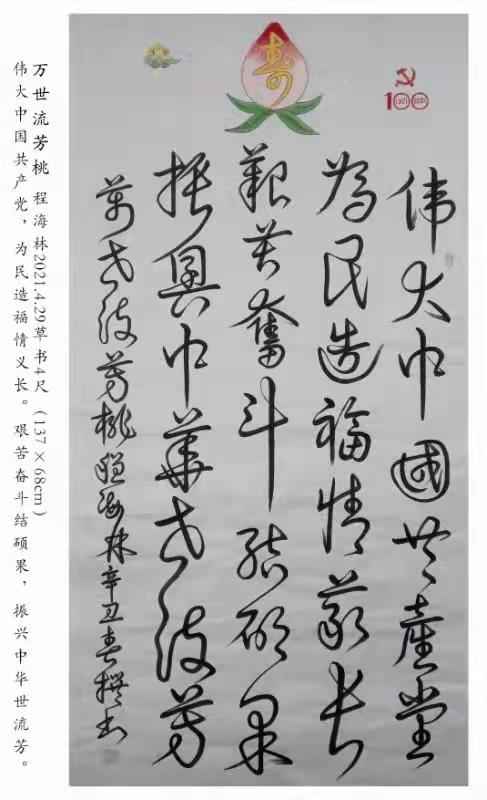 寿
100
伟大中國共產党
為民造福情義長
艱苦奮斗結碩果
振興中華世流芳
萬世流芳桃 程海林辛丑春撰书
万世流芳桃 程海林2021.4.29草书4尺 (137×68cm)
伟大中国共产党，为民造福情义长。艰苦奋斗结硕果，振兴中华世流芳。